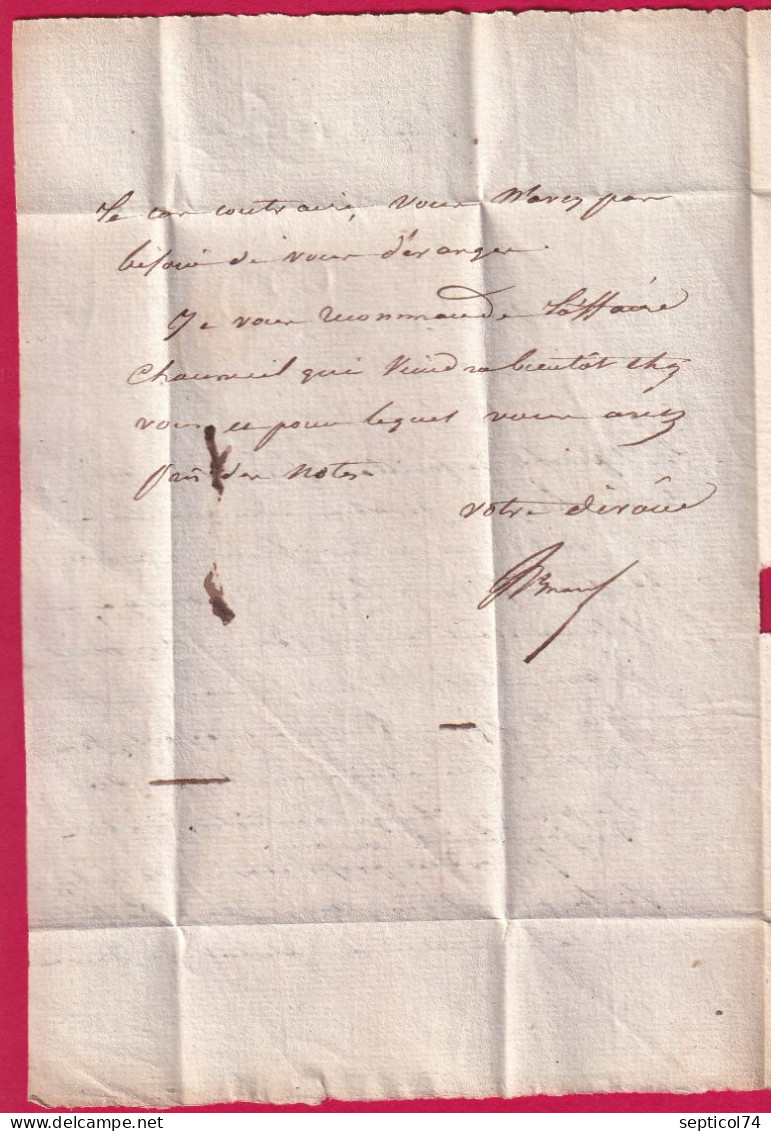 le cas contraire, vous n'avez pas
besoin de vous déranger.
Je vous recommande l'affaire
Chaumeil qui viendra bientôt chez
vous et pour lequel vous avez
pris des notes
votre dévoué
septicol74